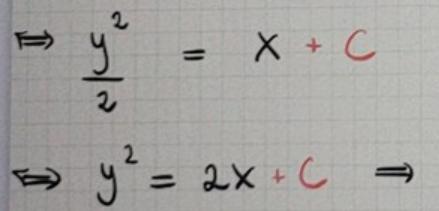 ⇔ y²/2 = x + C
⇔ y² = 2x + C ⇒